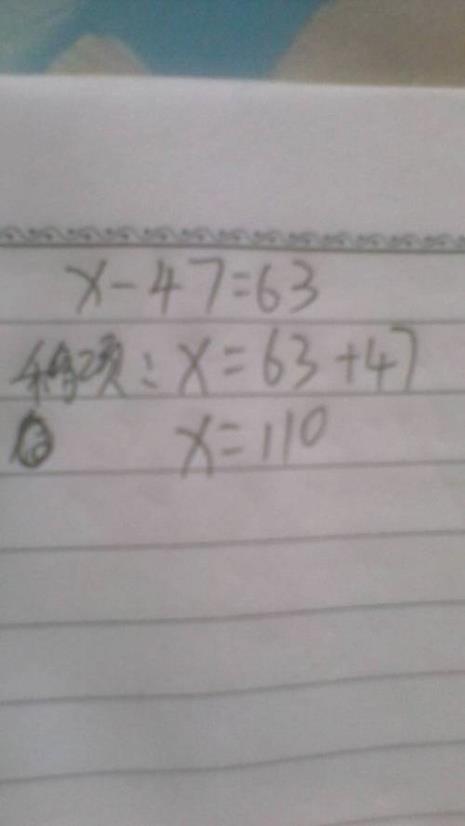 x-47=63
移项：x=63+47
x=110